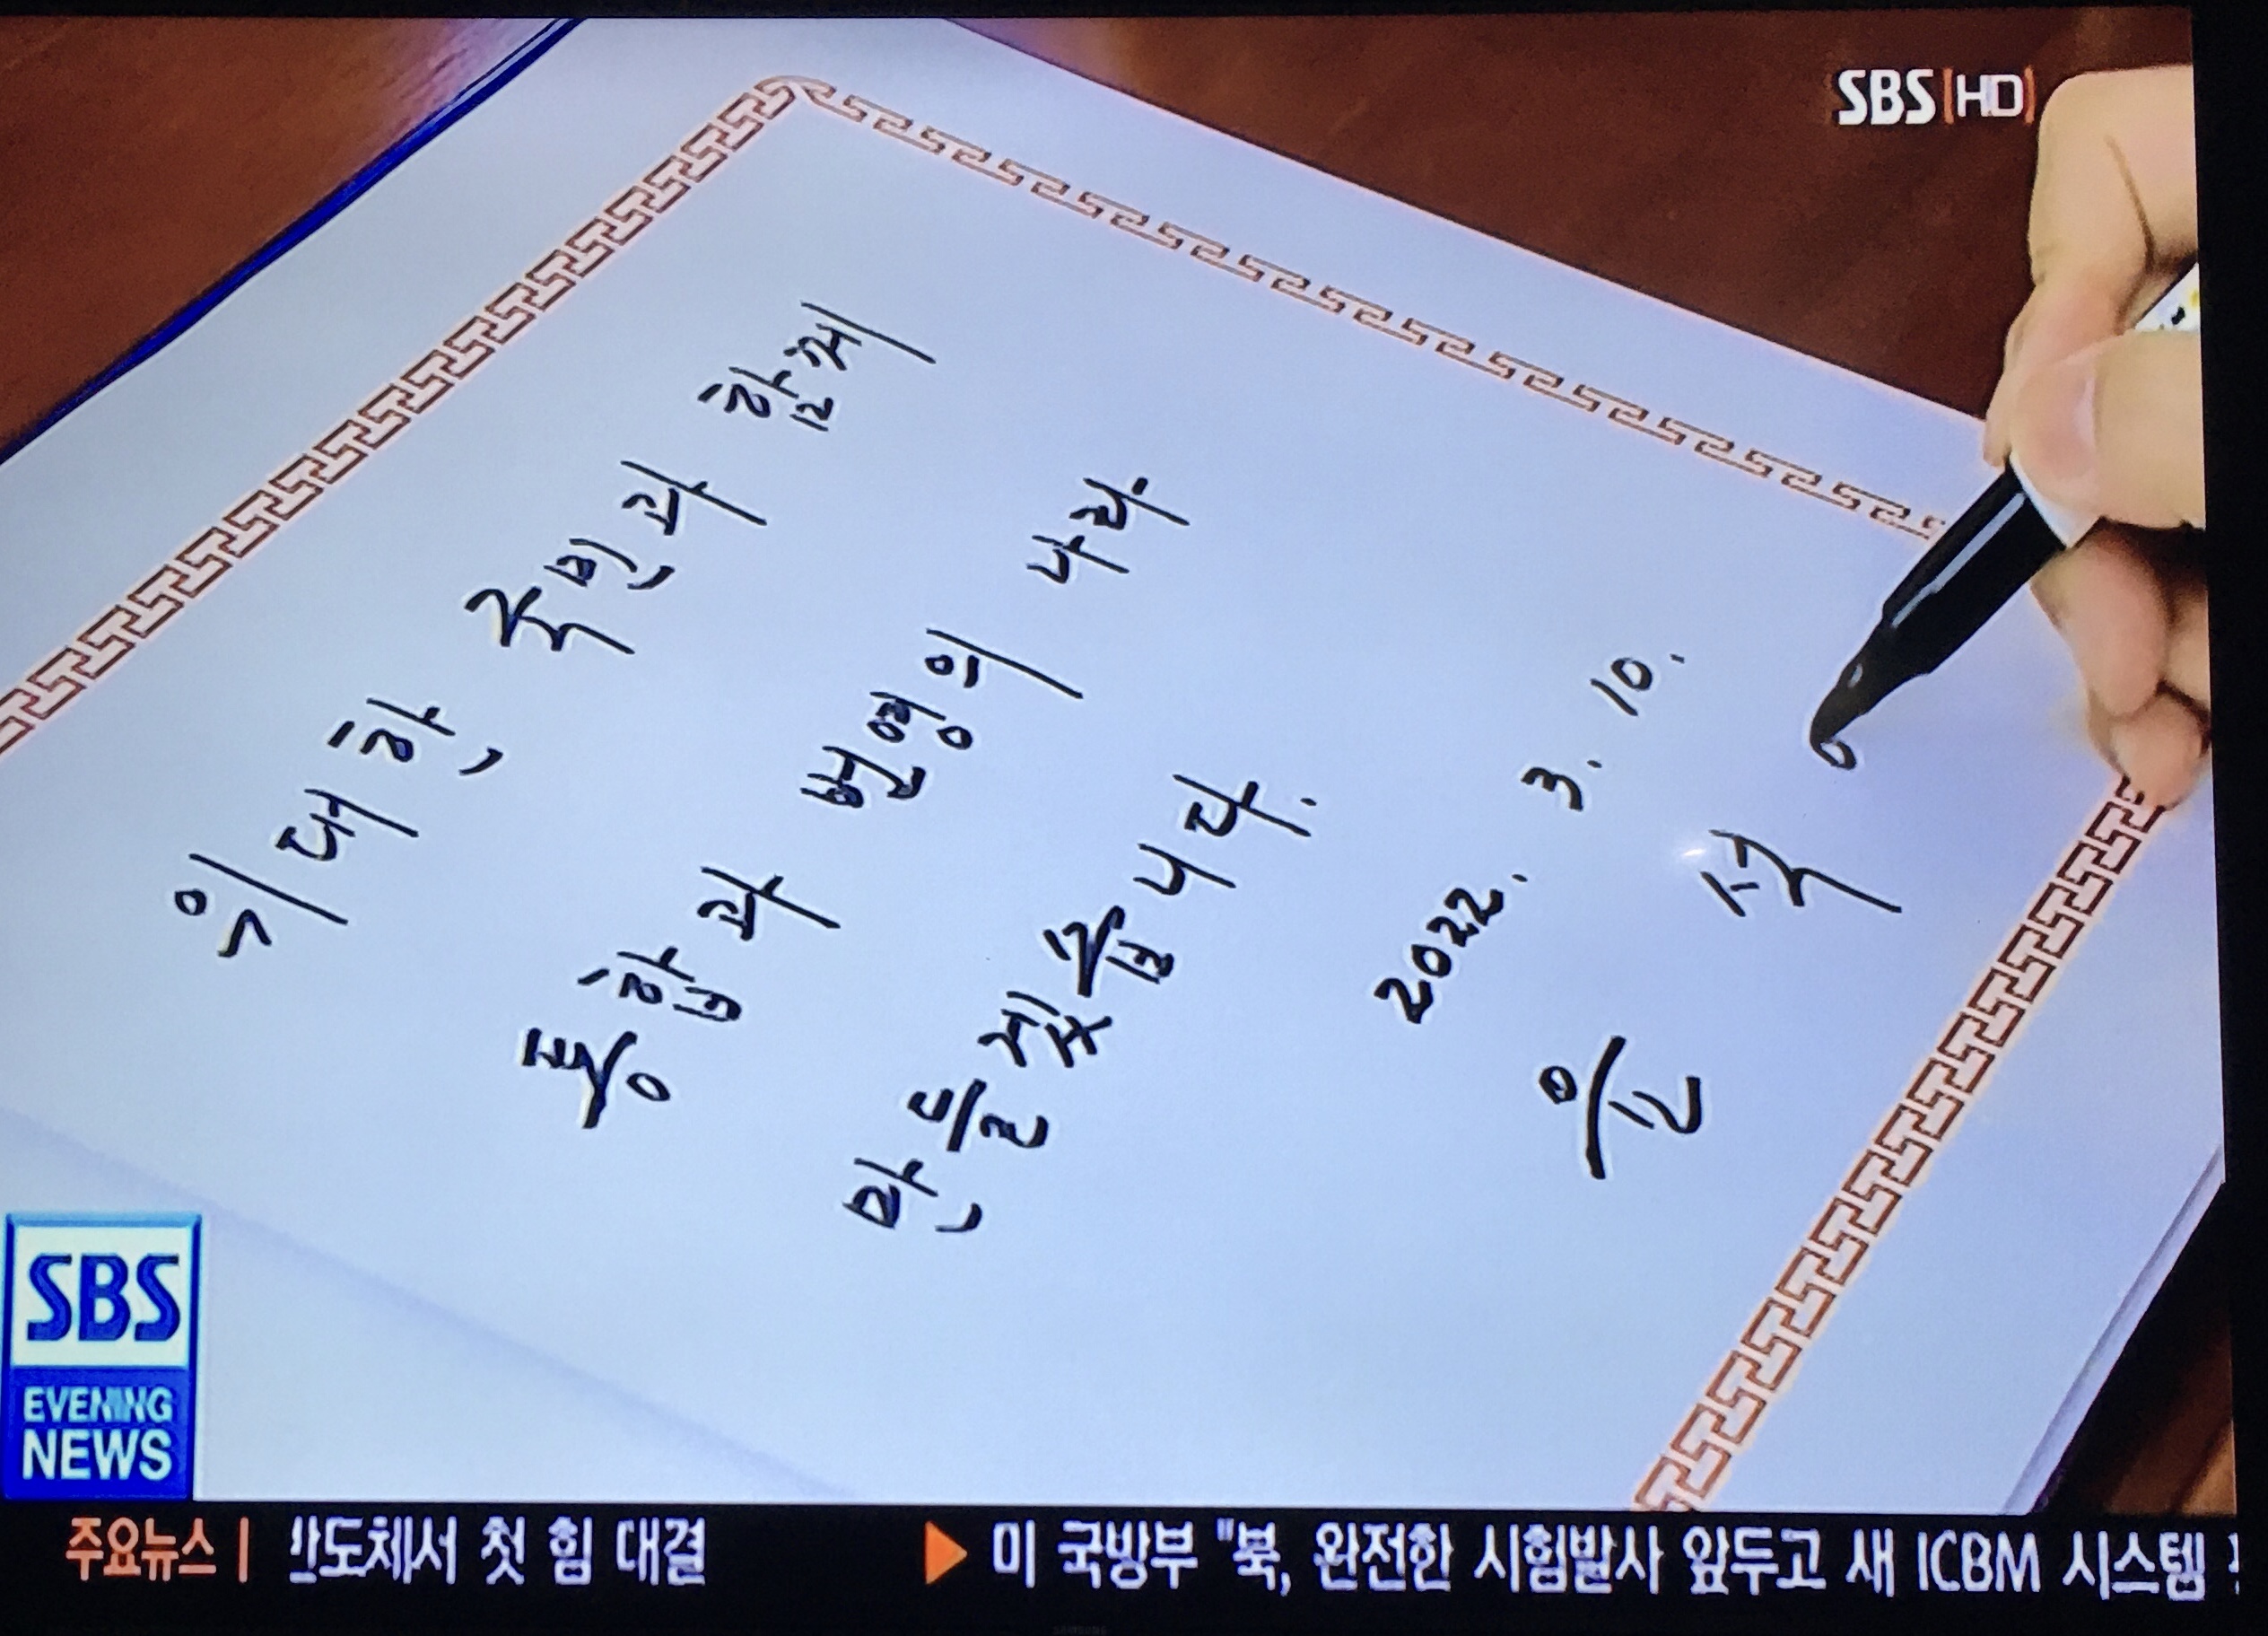 SBS HD
위대한 국민과 함께
통합과 번영의 나라.
만들겠습니다.
2022. 3. 10.
윤 석
SBS
EVENING
NEWS
주요뉴스 | 반도체서 첫 힘 대결 ▶ 미 국방부 "북, 완전한 시험발사 앞두고 새 ICBM 시스템
SAMSUNG